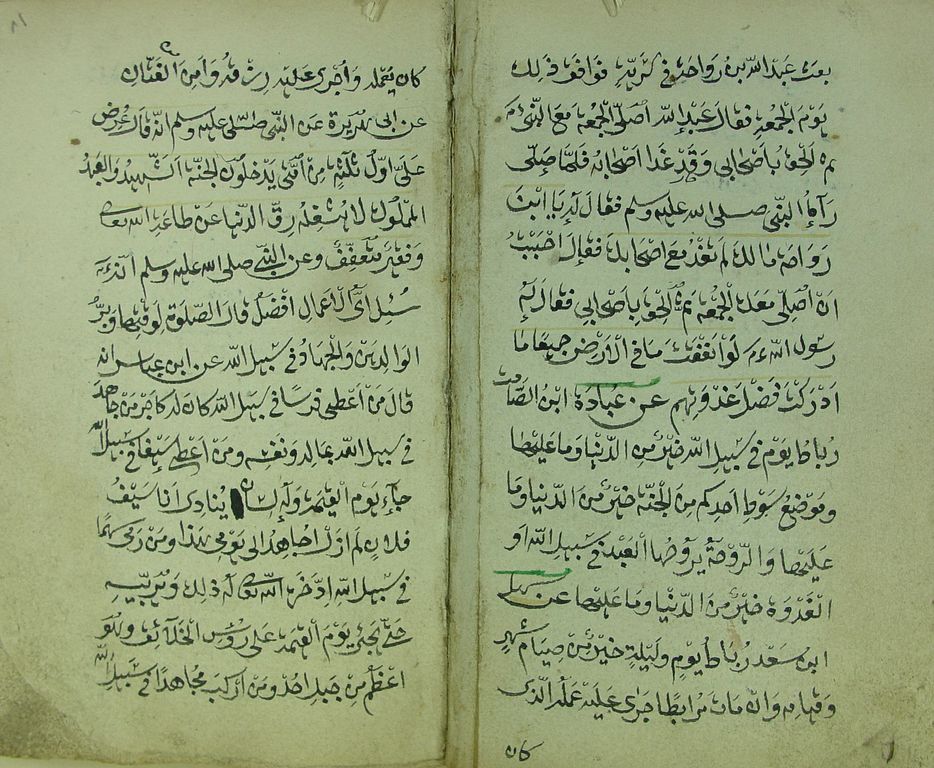 بعث عبد الله بن رواحة في سرية فوافق ذلك
يوم الجمعة فقال عبد الله اصلي الجمعة مع النبي ءم
ثم الحق باصحابي وقد غدا اصحابه فلما صلى
رآه النبي صلى الله عليه وسلم فقال له يا ابن
رواحة مالك لم تغد مع اصحابك فقال احببت
ان اصلي معك الجمعة ثم الحق باصحابي فقال له
رسول الله ءم لو انفقت ما في الارض جميعا ما
ادركت فضل غدوتهم عن عبادة ابن الصامت
رباط يوم في سبيل الله خير من الدنيا وما عليها
وموضع سوط احدكم من الجنة خير من الدنيا وما
عليها والروحة يروحها العبد في سبيل الله او
الغدوة خير من الدنيا وما عليها عن سهل
ابن سعد رباط يوم وليلة خير من صيام شهر
وقيامه وان مات مرابطا جرى عليه عمله الذي
كان
٨١
كان يعمله واجرى عليه رزقه وامن الفتان
عن ابي هريرة عن النبي صلى عليه وسلم انه قال عرض
على اول ثلثة من امتي يدخلون الجنة الشهيد والعبد
المملوك لا يشغله رق الدنيا عن طاعة الله تعالى
وفقير متعفف وعن النبي صلى الله عليه وسلم انه
سئل اي الاعمال افضل قال الصلوة لوقتها وبر
الوالدين والجهاد في سبيل الله عن ابن عباس انه
قال من اعطى فرسا في سبيل الله كان له كاجر من جاهد
في سبيل الله بماله ونفسه ومن اعطى سيفا في سبيل الله
جاء يوم القيمة وله لسان ينادي انا سيف
فلان لم ازل اجاهد الى يومي هذا ومن رمى سهما
في سبيل الله ادخر الله تعالى له ذلك ويربيه
حتى يجئ يوم القيمة على رؤس الخلائق وهو
اعظم من جبل احد ومن اركب مجاهدا في سبيل الله